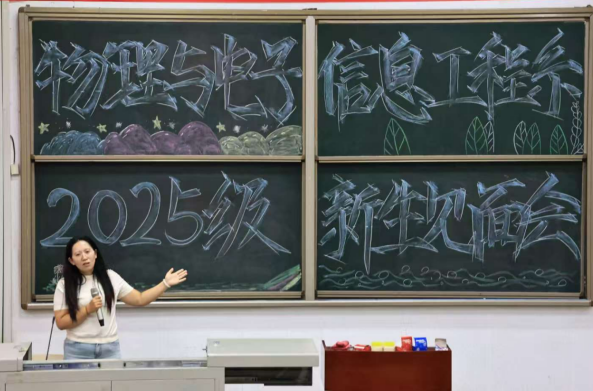 物理与电子信息工程学
2025级新生见面会